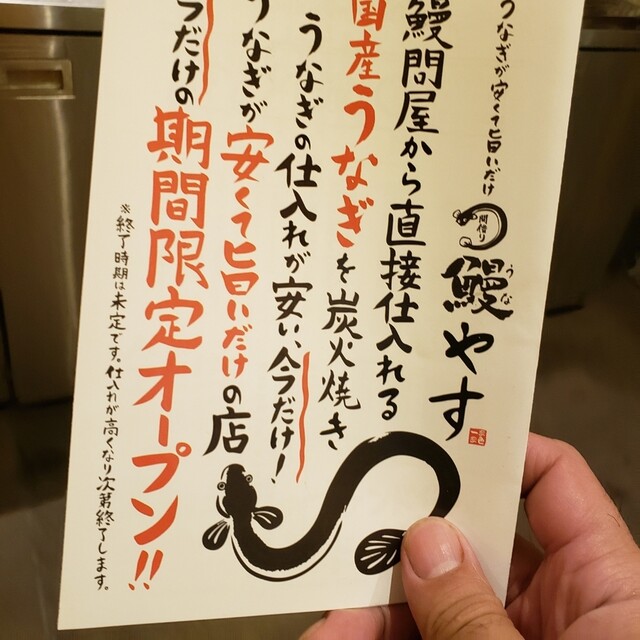 うなぎが安くて旨いだけ
間借り
鰻やす
うな
鰻問屋から直接仕入れる
国産うなぎを炭火焼き
うなぎの仕入れが安い、今だけ!
うなぎが安くて旨いだけの店
つだけの期間限定オープン!!
※終了時期は未定です。仕入れが高くなり次第終了します。